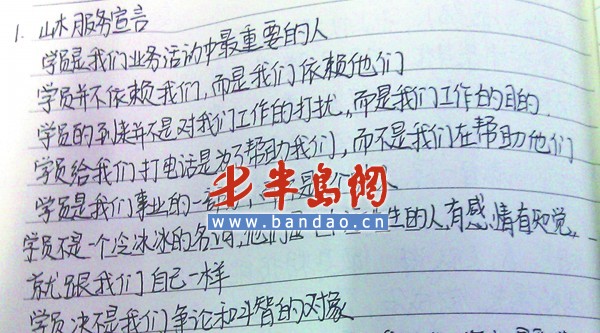 1. 山木服务宣言
学员是我们业务活动中最重要的人
学员并不依赖我们,而是我们依赖他们
学员的到来并不是对我们工作的打扰,而是我们工作的目的.
学员给我们打电话是为了帮助我们,而不是我们在帮助他们
学员是我们事业的一 是 人
半岛网
www.bandao.cn
学员不是一个冷冰冰的名词,他们 生的人,有感情有知觉,
就跟我们自己一样
学员决不是我们争论和斗智的对象